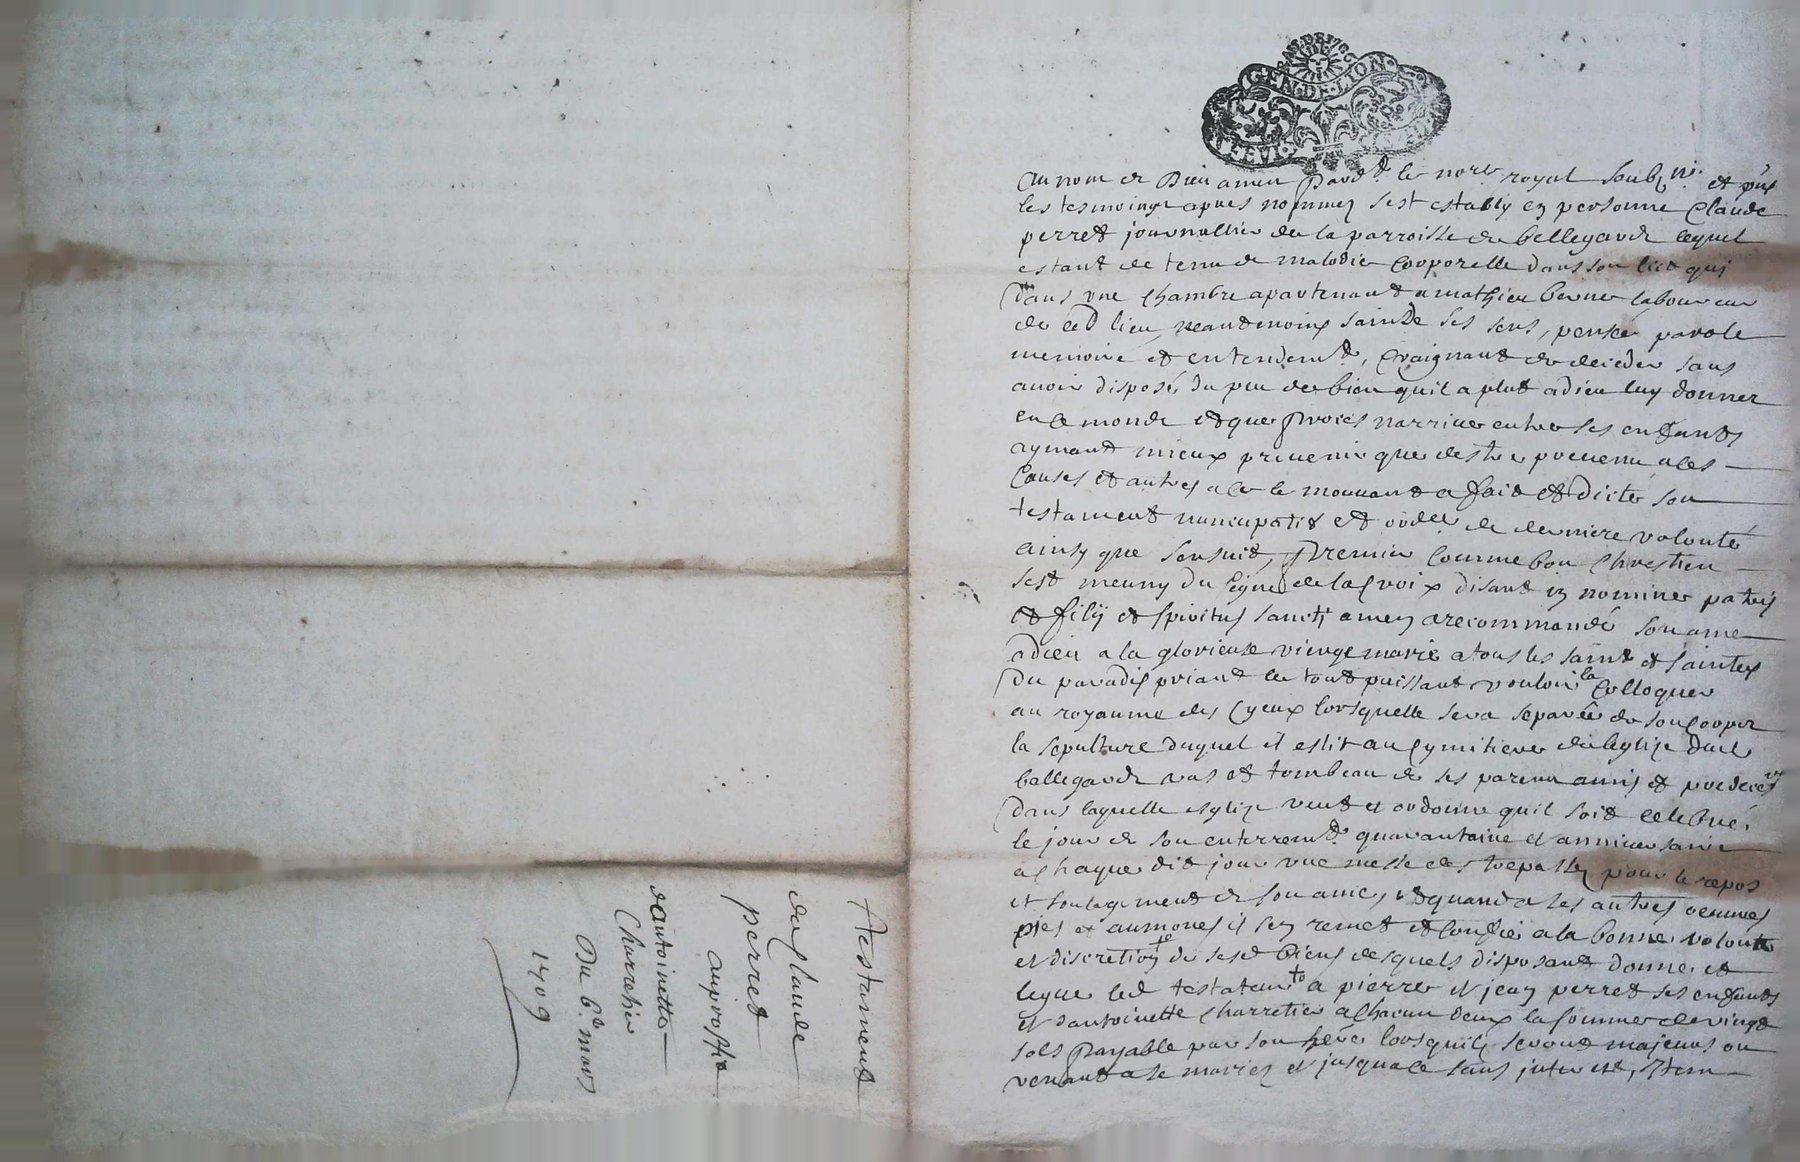 Testament
de Claude
perret
au proffit
d'antoinette
Charretier
Du 6e mars
1709
GEN·DE·LION
Au nom de Dieu amen Pard.t le nore royal soubz.né et pñs
les tesmoings apres nommez sest estably en personne Claude
perret journallier de la parroisse de bellegarde lequel
estant detenu de maladie Corporelle dans son lict qui
dans une chambre apartenant a mathieu berner laboureur
de ced lieu, neantmoins sain de ses sens, pensée parole
memoire et entendem.t, Craignant de deceder sans
avoir disposé du peu de bien quil a plut a dieu luy donner
en ce monde et que proces narrive entre ses enfants
aymant mieux prevenir que destre prevenu a ces
Causes et autres a ce le mouvant a faict et dicté son
testament nuncupatif et ordce de derniere volonté
ainsy que sensuit, Premier Comme bon Chrestien
sest meuny du signe de la Croix disant in nomine patris
et filij et spiritus sancti amen a recommandé son ame
a dieu a la glorieuse vierge marie a tous les saint et saintes
Du paradis priant le tout puissant vouloir la Colloquer
au royaume des Cyeux lorsquelle sera separée de son Corps
la sepulture duquel il eslit au Cymitiere de leglize dud
bellegarde vas et tombeau de ses parens amis et predecesrs
Dans laquelle esglize veut et ordonne quil soit celebré
le jour de son enterrem.t quarantaine et anniversaire
a chaque dit jour une messe des trepassez pour le repos
et soulagement de son ame, et quand a ses autres oeuvres
pies et aumones il sen remet et Confie a la bonne volonté
et discretion de sesd biens desquels disposant donne et
legue led testateur a pierre et jean perret ses enfants
et d'antoinette Charretier a chacun deux la somme de vingt
sols payable par son here lorsquils seront majeurs ou
venant a se marier et jusqua ce sans interest, Item